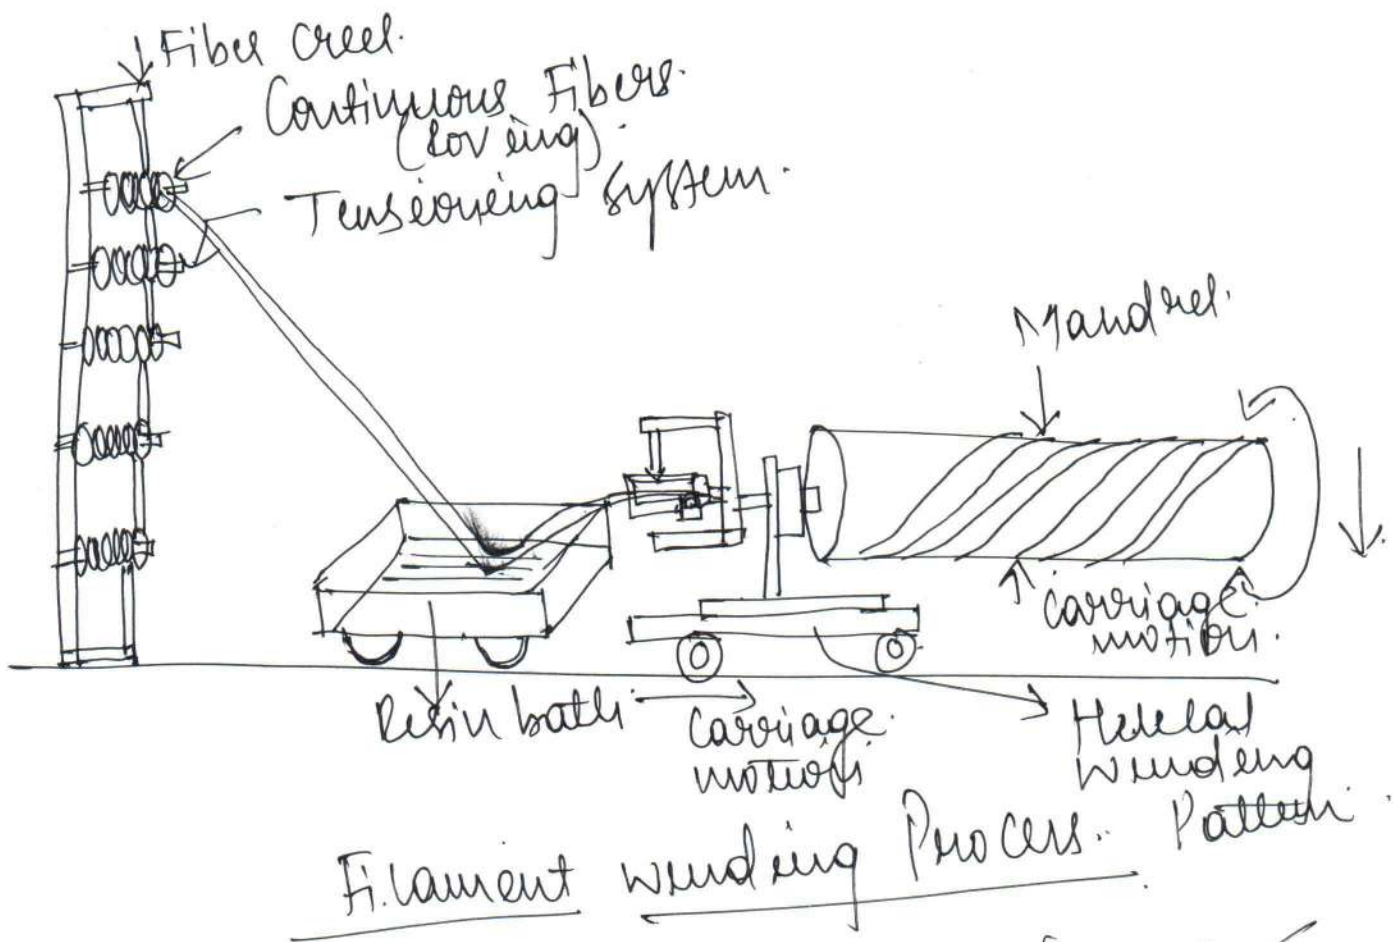 Fiber Creel.
Continuous Fibers.
(Roving).
Tensioning System.
Mandrel.
Carriage
motion.
Resin bath
Carriage
motion
Helical
winding
Pattern.
Filament winding Process.